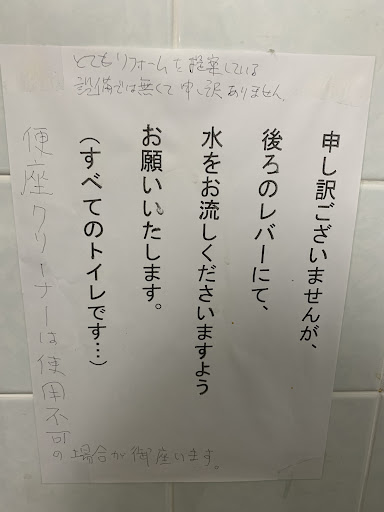 とてもリフォームを提案している
設備では無くて申し訳ありません。
申し訳ございませんが、
後ろのレバーにて、
水をお流しくださいますよう
お願いいたします。
(すべてのトイレです…)
便座クリーナーは使用不可
の場合が御座います。